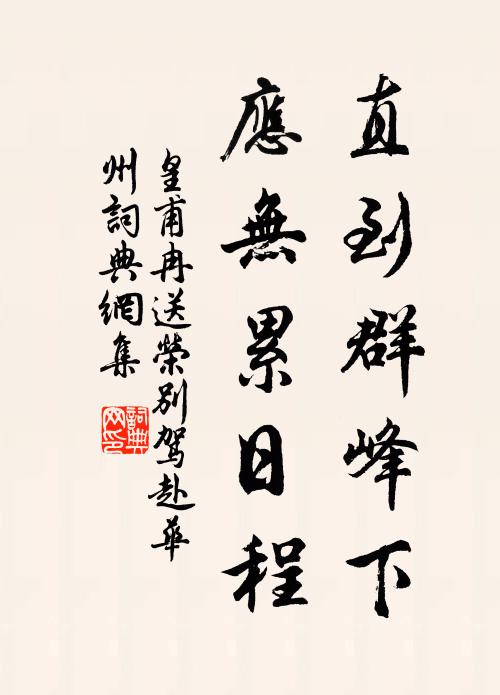 直到群峰下
應無累日程
皇甫冉送榮別駕赴華
州詞典網集
詞典
网印